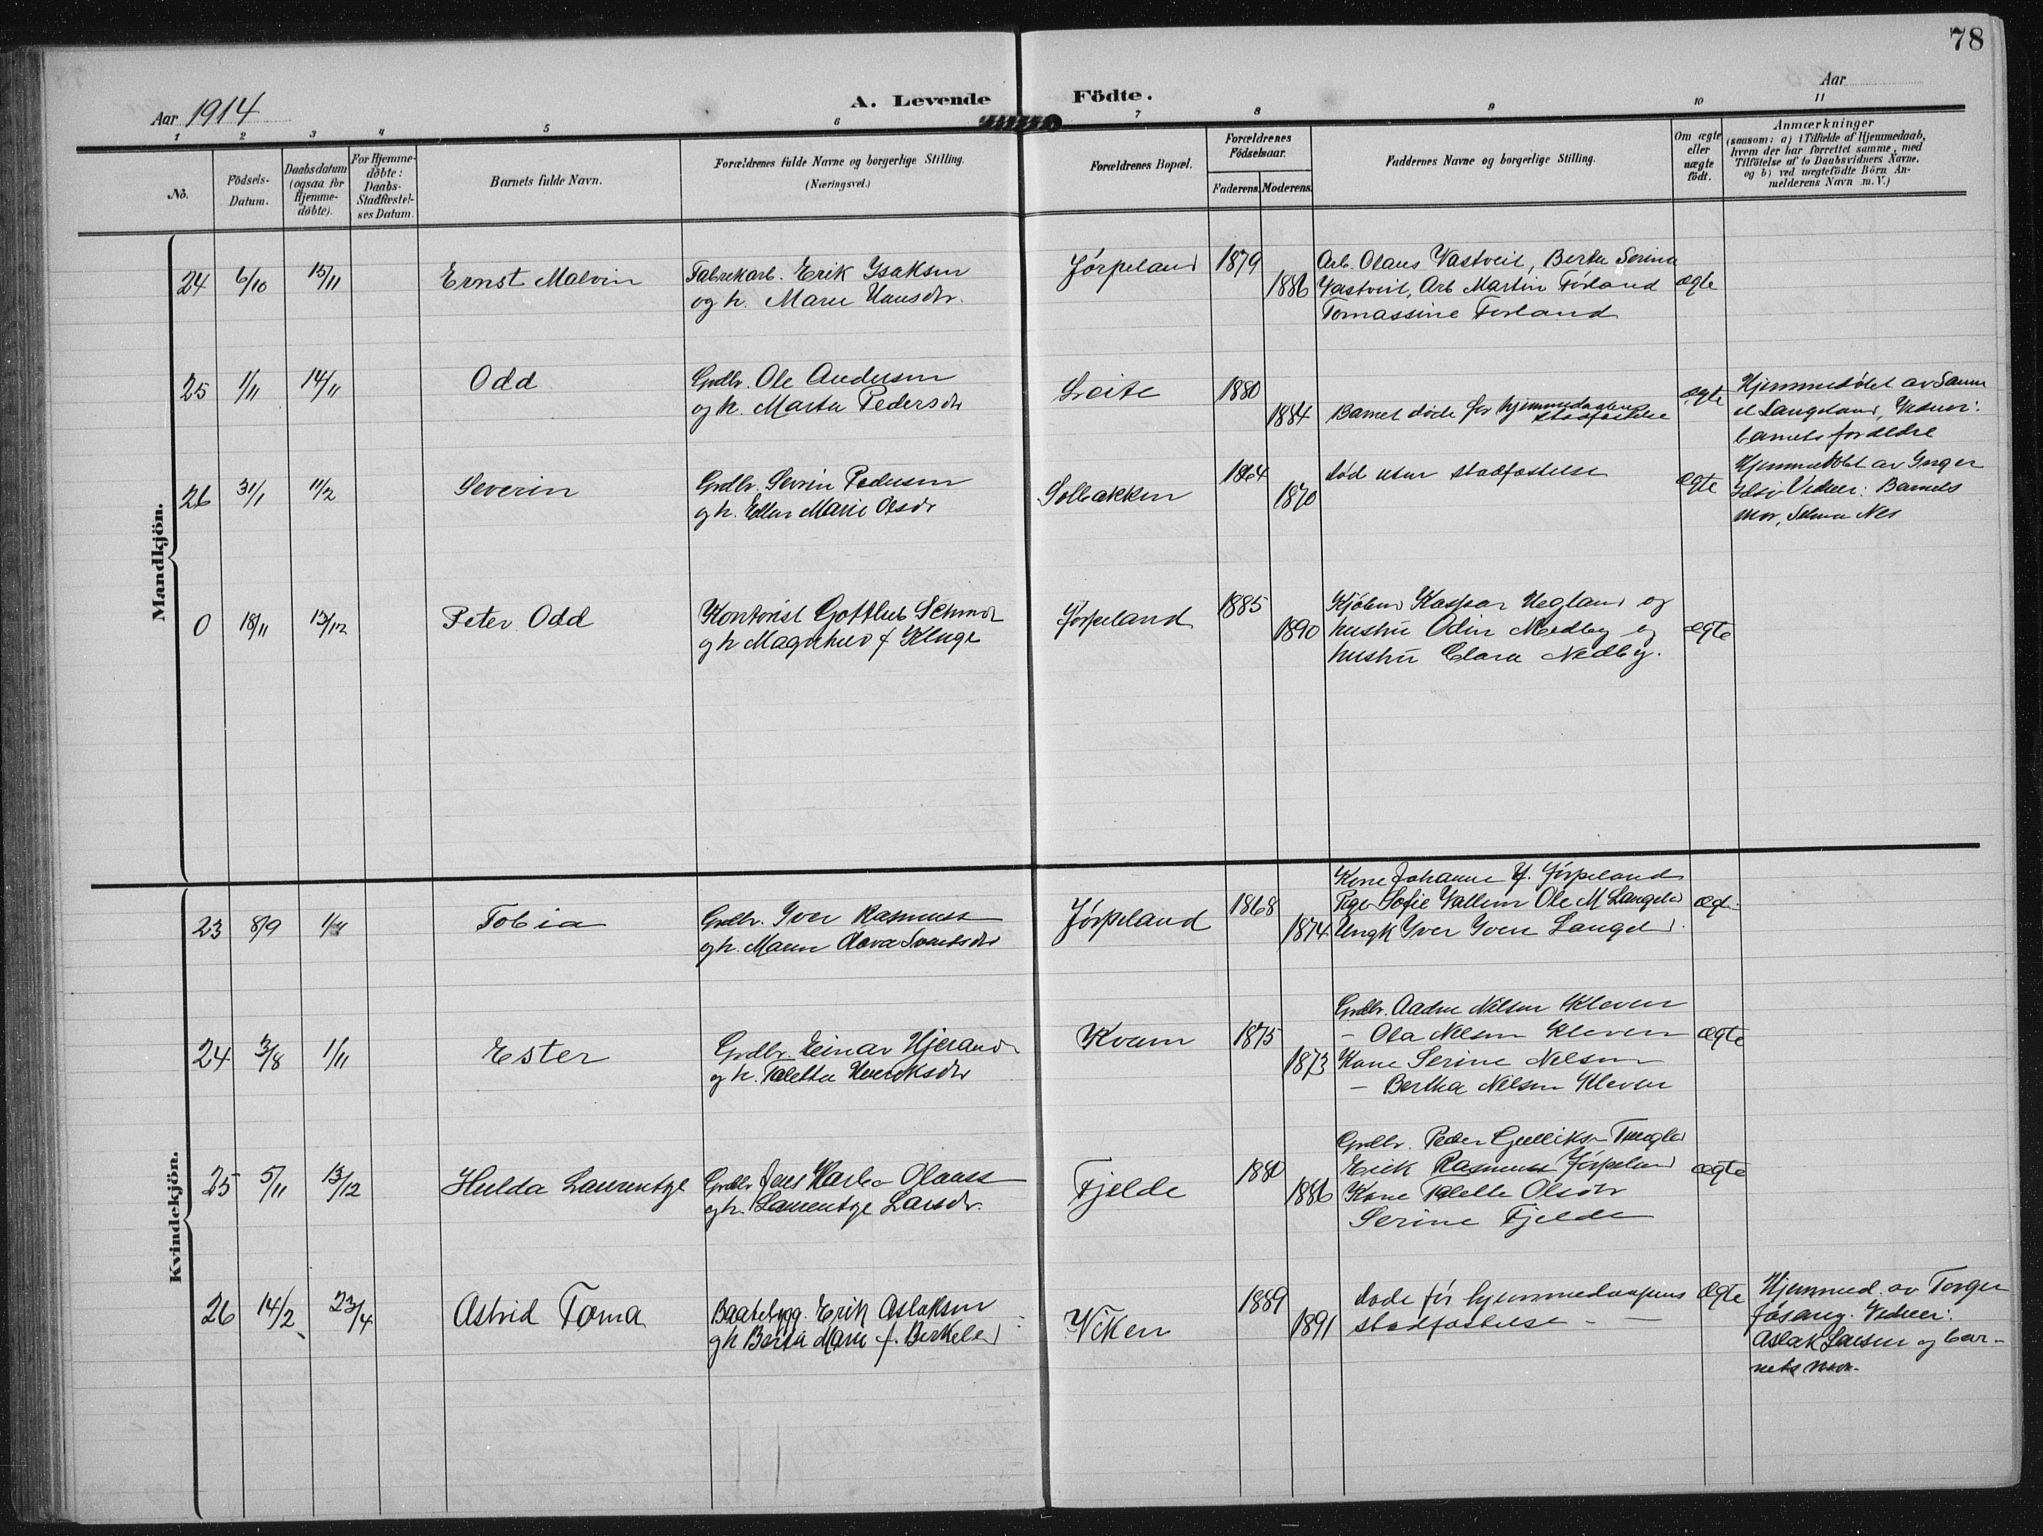 78
Aar 1914
A. Levende Födte.
Aar
1 2 3 4 5 6 7 8 9 10 11
No.
Födsels-
Datum.
Daabsdatum
(ogsaa for
Hjemme-
döbte).
For Hjemme-
döbte:
Daabs-
Stadfæstel-
ses Datum.
Barnets fulde Navn.
Forældrenes fulde Navne og borgerlige Stilling.
(Næringsvei.)
Forældrenes Bopæl.
Forældrenes
Födselsaar.
Faderens. Moderens.
Faddernes Navne og borgerlige Stilling.
Om ægte
eller
uægte
födt.
Anmærkninger
(saasom: a) i Tilfælde af Hjemmedaab,
hvem der har forrettet samme, med
Tilföielse af to Daabsvidners Navne.
og b) ved uægtefödte Börn An-
melderens Navn m. V.)
Mandkjön.
24 6/10 15/11 Ernst Malvin
Fabrikarb. Erik Isaksen
og h. Marie Hansdr.
Jørpeland 1879
1886
Arb. Olaus Vastveit, Berta Serina
Vastveit, Arb Martin Førland
Tomassine Førland
ægte
25 1/11 14/11 Odd
Grdbr. Ole Andersen
og h. Marta Pedersdr
Leite 1880
1884
Barnet døde før hjemmedaabens
stadfæstelse
ægte
Hjemmedøbt av Samu
el Langeland, Vidner:
barnets forældre
26 31/1 11/2 Severin
Grdbr. Sevrin Pedersen
og h. Ellen Marie Olsdr
Solbakken 1864
1870
død uten stadfæstelse
ægte
Hjemmedøbt av Inger
Vidner: Barnets
mor, Selma Nes
0 18/11 13/12 Peter Odd
Kontorist Gottlieb
og h f. Kluge
Jørpeland 1885
1890
Kaspar Hegland og
hustru Odin Medby og
hustru Clara Nedby.
ægte
Kvindekjön.
23 8/9 1/11 Tobia
Grdbr. Iver Rasmuss
og h. Maren
Jørpeland 1868
1874
Kone Johanne Jørpeland
Pige Sofie Vallem Ole M Langela
Ungk Iver Iversen Langel
ægt.
24 3/8 1/11 Ester
Grdbr. Einar Hjerand
og h. Taletta Henriksdr
Kvam 1875
1873
Grdbr. Aadne Nilsen Kleven
- Ola Nelsen Kleven
Kone Serine Nelsen
- Bertha Nelsen Kleven
ægte
25 5/11 13/12 Hulda Laurentze
Grdbr Jens Karl Olauss
og h. Laurentze Larsdr.
Fjelde 1880
1886
Grdbr. Peder Gulliks
Erik Rasmuss Jørpeland
Kone Talette Olsdtr
Serine Fjelde
ægte
26 14/2 23/4 Astrid Toma
Baatbygg. Erik Aslaksen
og h Berta Marie f. Berkeland
Viken 1889
1891
døde før hjemmedaapens
stadfæstelse - -
ægte
Hjemmed. av Torger
Jøsang. Vidner:
Aslak Larsen og bar-
nets mor.